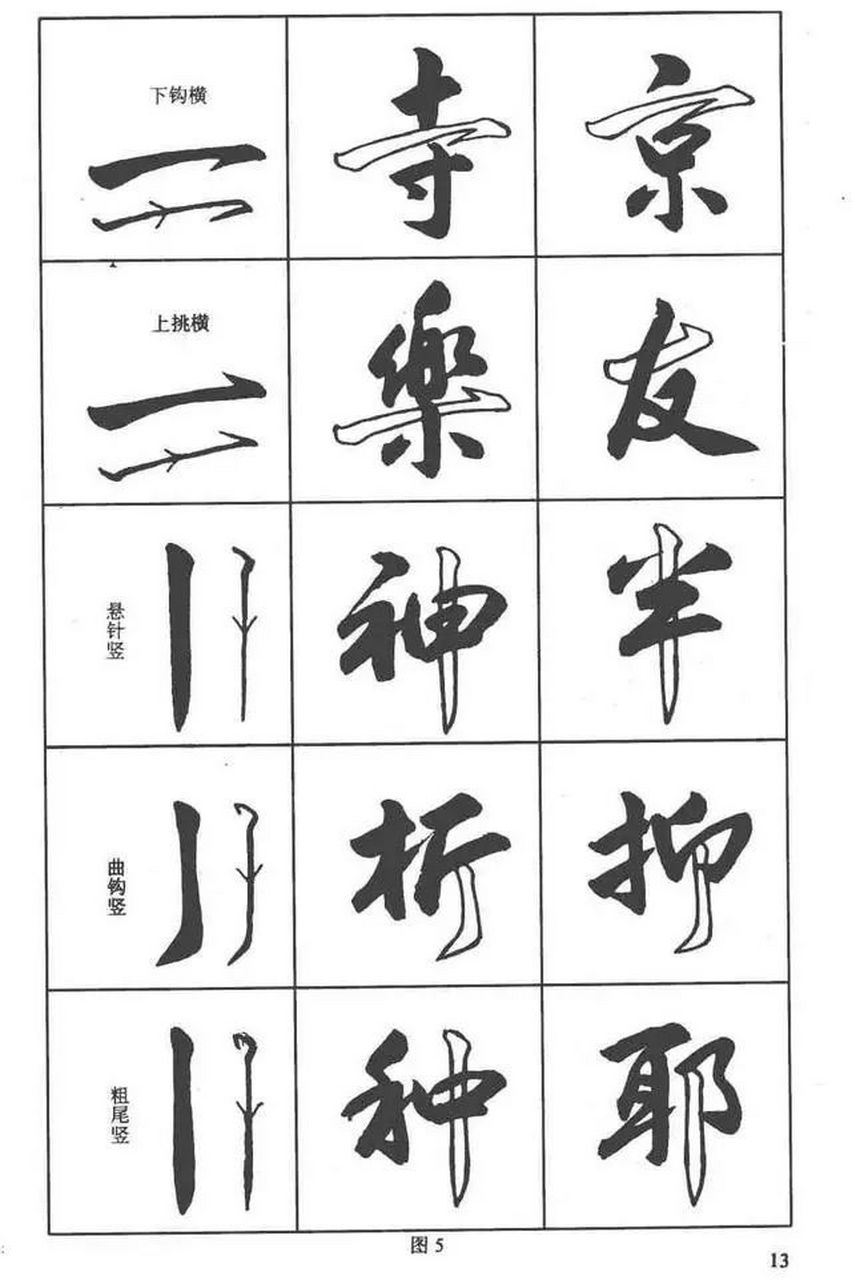 下钩横
寺
京
上挑横
樂
友
悬针竖
神
半
曲钩竖
析
抑
粗尾竖
种
耶
图 5
13